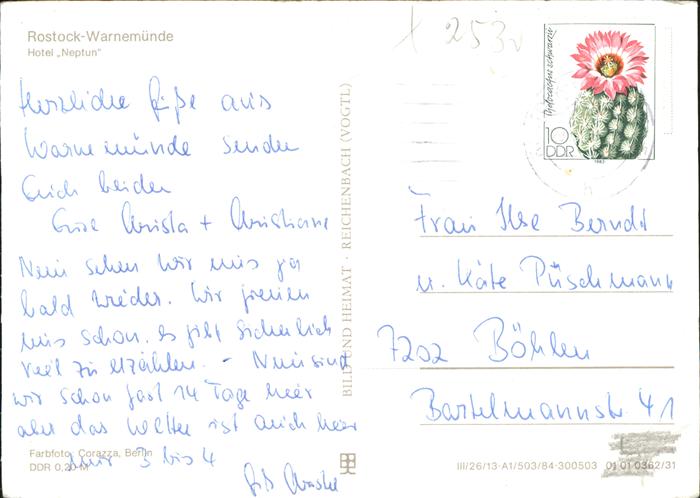 Rostock-Warnemünde
Hotel „Neptun"
Herzliche Grüße aus
Warnemünde senden
Euch beiden
Eure Christa + Christiane
Nun sehen wir uns ja
bald wieder. Wir freuen
uns schon. es gibt sicherlich
viel zu erzählen. - Nun sind
wir schon fast 14 Tage hier
aber das Wetter ist auch hier
nur 3 bis 4
Farbfoto: Corazza, Berlin
DDR 0,20 M
BILD UND HEIMAT · REICHENBACH (VOGTL)
x 253
10
DDR
1983
Frau Ilse Berndt
u. Käte Püschmann
7202 Böhlen
Bartelmannstr. 41
III/26/13-A1/503/84-300503 01 01 0362/31